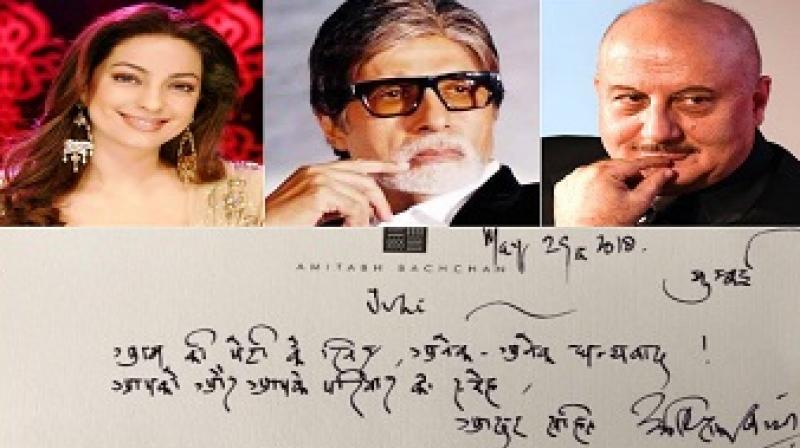 May 29 2018.
AMITABH BACHCHAN
मुम्बई
Juhi
आम की पेटी के लिए, अनेक - अनेक धन्यवाद !
आपको और आपके परिवार को स्नेह,
आदर सहित